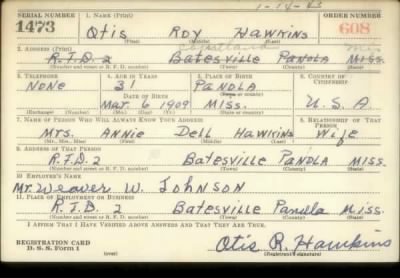 1-14-43
SERIAL NUMBER 1. NAME (Print) ORDER NUMBER
1473 Otis Roy Hawkins 608
(First) (Middle) (Last)
2. ADDRESS (Print)
R.F.D. 2 Batesville Panola Miss.
(Number and street or R. F. D. number) (Town) (County) (State)
3. TELEPHONE 4. AGE IN YEARS 5. PLACE OF BIRTH 6. COUNTRY OF CITIZENSHIP
None 31 Panola
DATE OF BIRTH
Mar. 6 1909 Miss. U.S.A
(Exchange) (Number) (Mo.) (Day) (Yr.) (State or country)
7. NAME OF PERSON WHO WILL ALWAYS KNOW YOUR ADDRESS 8. RELATIONSHIP OF THAT PERSON
Mrs. Annie Dell Hawkins Wife
(Mr., Mrs., Miss) (First) (Middle) (Last)
9. ADDRESS OF THAT PERSON
R.F.D. 2 Batesville Panola Miss.
(Number and street or R. F. D. number) (Town) (County) (State)
10. EMPLOYER'S NAME
Mr. Weaver W. Johnson
11. PLACE OF EMPLOYMENT OR BUSINESS
R.F.D. 2 Batesville Panola Miss.
(Number and street or R. F. D. number) (Town) (County) (State)
I AFFIRM THAT I HAVE VERIFIED ABOVE ANSWERS AND THAT THEY ARE TRUE.
REGISTRATION CARD
D. S. S. Form 1 Otis R. Hawkins
(Registrant's signature)